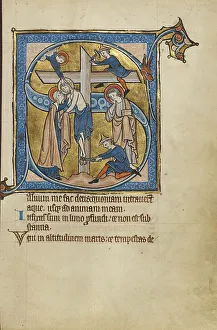 aluum me fac deus quoniam intrauerunt
aque usq; ad animam meam.
Infixus sum in limo profundi: et non est sub
stantia.
Veni in altitudinem maris: et tempestas de